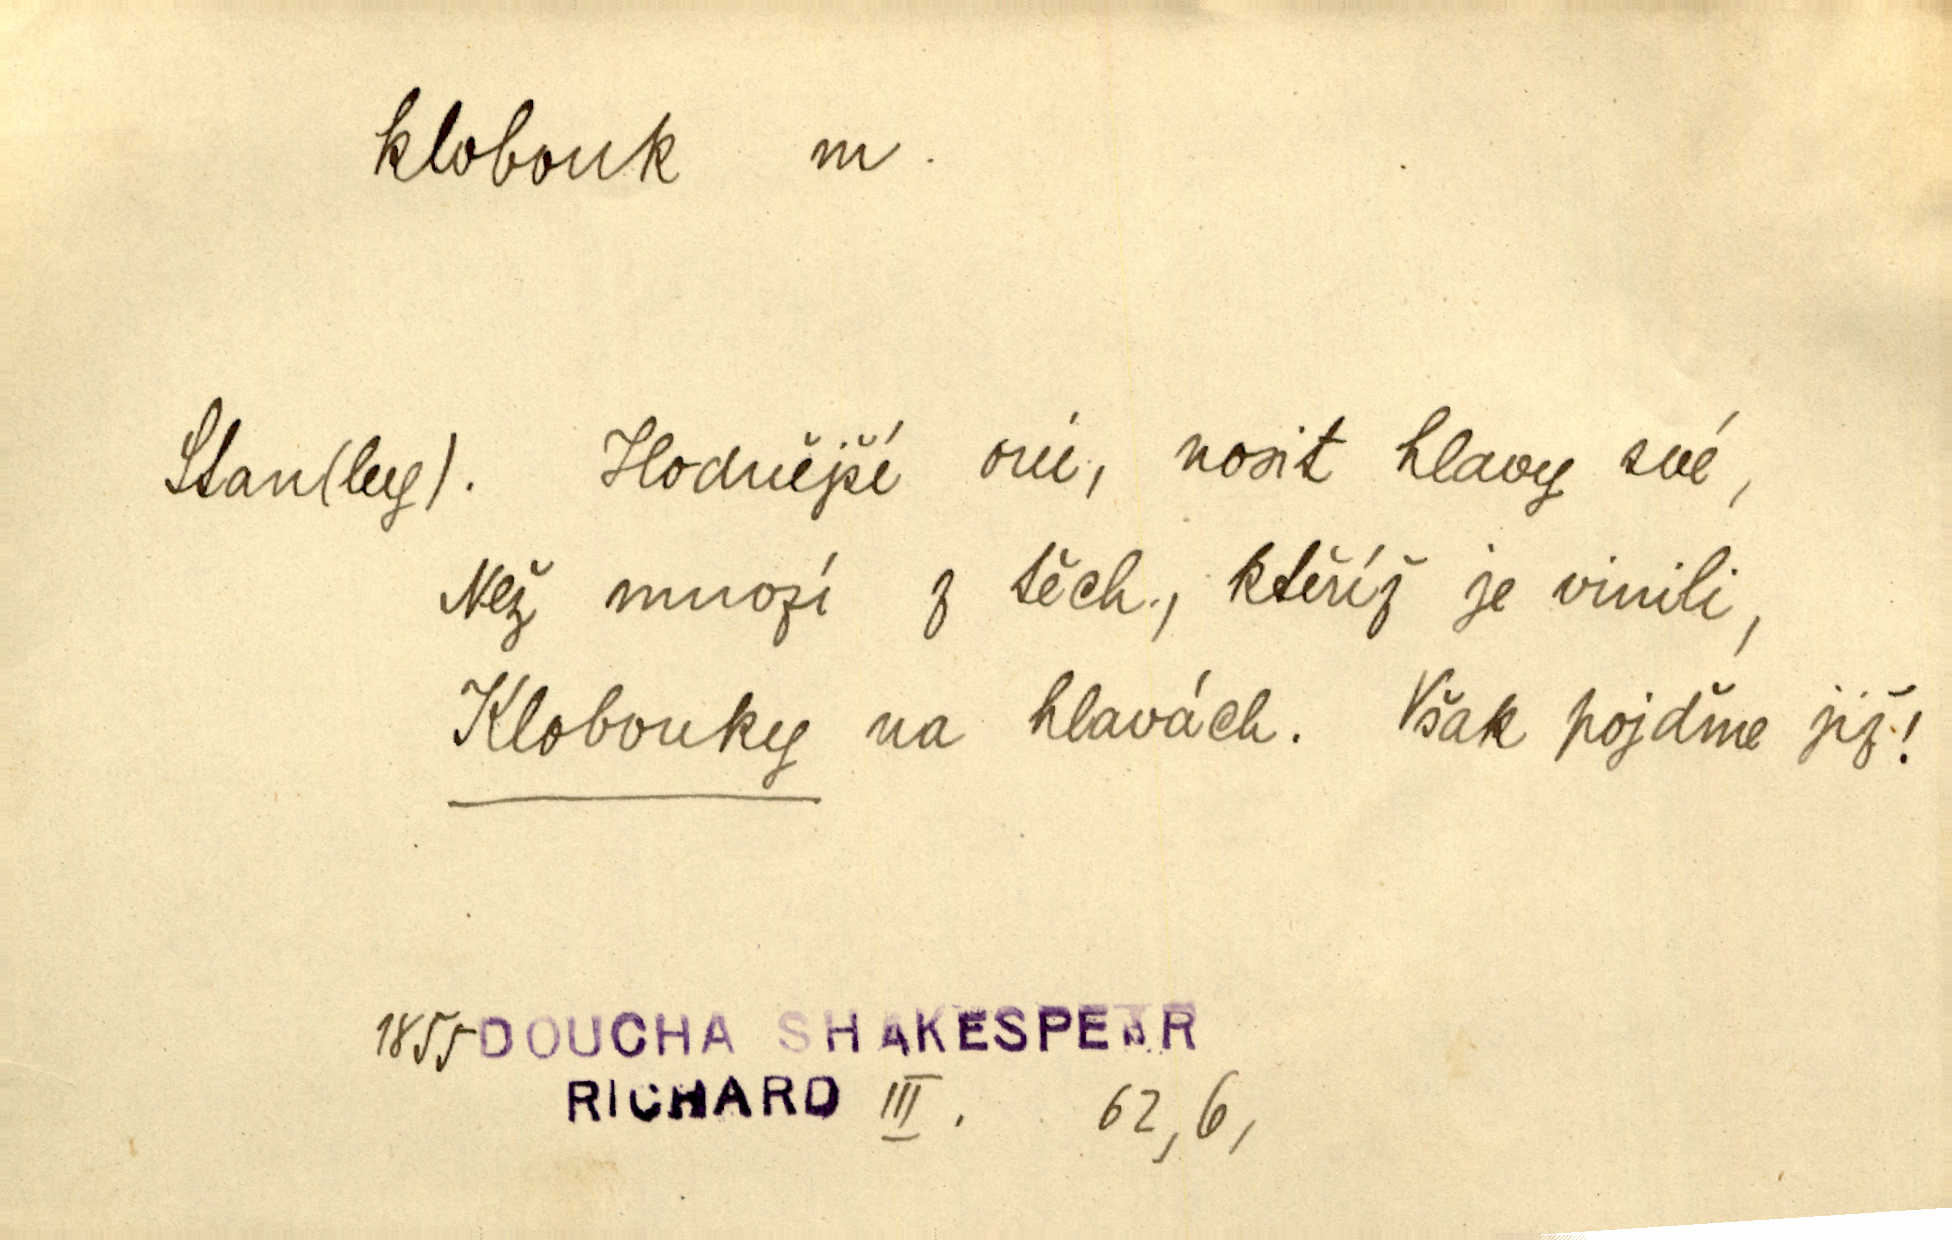 klobouk m.
Stan(ley). Hodnější oni, nosit hlavy své,
Než mnozí z těch, kteříž je vinili,
Klobouky na hlavách. Však pojďme již!
1855 DOUCHA SHAKESPEAR
RICHARD III. 62,6,